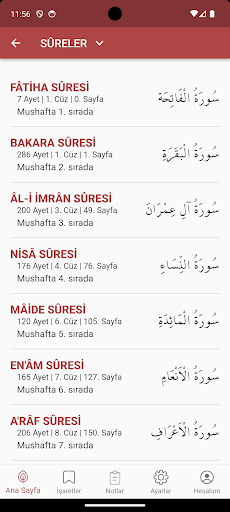 11:56
SÛRELER
FÂTİHA SÛRESİ
7 Ayet | 1. Cüz | 0. Sayfa
Mushafta 1. sırada
سُورَةُ الْفَاتِحَة
BAKARA SÛRESİ
286 Ayet | 1. Cüz | 1. Sayfa
Mushafta 2. sırada
سُورَةُ الْبَقَرَةِ
ÂL-İ İMRÂN SÛRESİ
200 Ayet | 3. Cüz | 49. Sayfa
Mushafta 3. sırada
سُورَةُ آلِ عِمْرَانَ
NİSÂ SÛRESİ
176 Ayet | 4. Cüz | 76. Sayfa
Mushafta 4. sırada
سُورَةُ النِّسَاءِ
MÂİDE SÛRESİ
120 Ayet | 6. Cüz | 105. Sayfa
Mushafta 5. sırada
سُورَةُ الْمَائِدَةِ
EN'ÂM SÛRESİ
165 Ayet | 7. Cüz | 127. Sayfa
Mushafta 6. sırada
سُورَةُ الْاَنْعَامِ
A'RÂF SÛRESİ
206 Ayet | 8. Cüz | 150. Sayfa
Mushafta 7. sırada
سُورَةُ الْاَعْرَافِ
Ana Sayfa
İşaretler
Notlar
Ayarlar
Hesabım